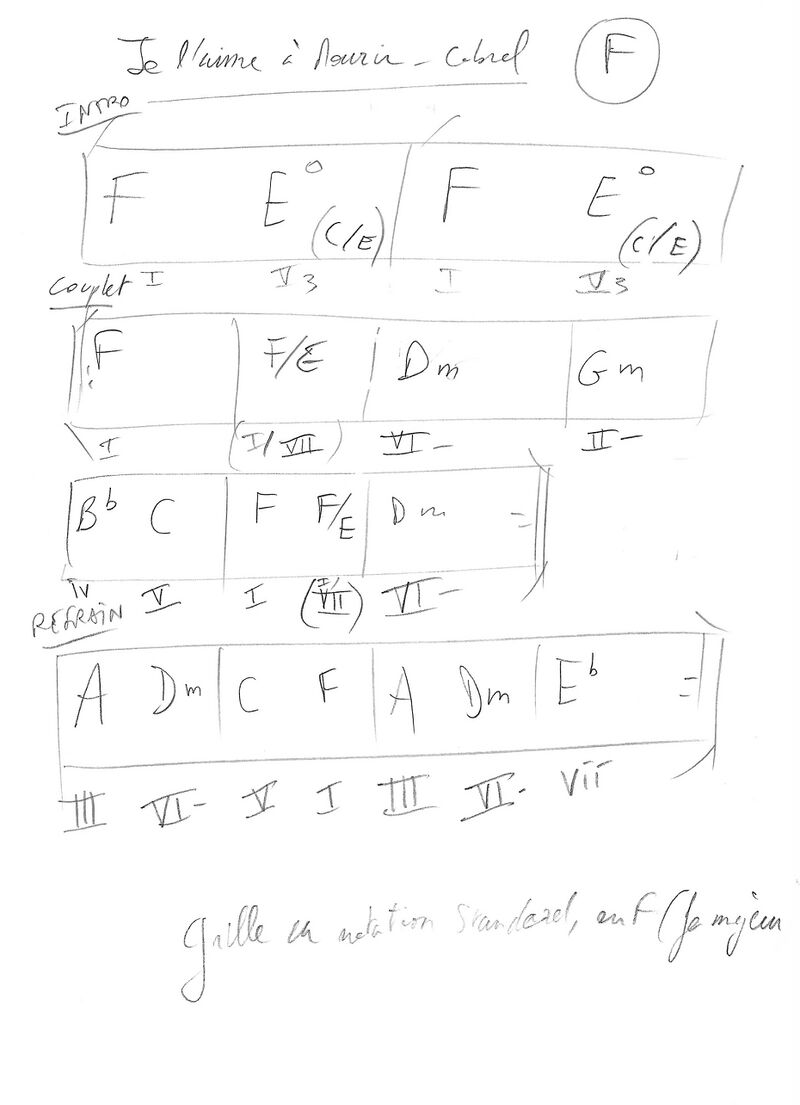 Je l'aime à Mourir - Cabrel F
INTRO
F E° (C/E) F E° (C/E)
I V3 I V3
Couplet
F F/E Dm Gm
I (I/VII) VI- II-
Bb C F F/E Dm =
iv V I (I/VII) VI-
REFRAIN
A Dm C F A Dm Eb =
III VI- V I III VI- vii
Grille en notation Standard, en F (Fa majeur